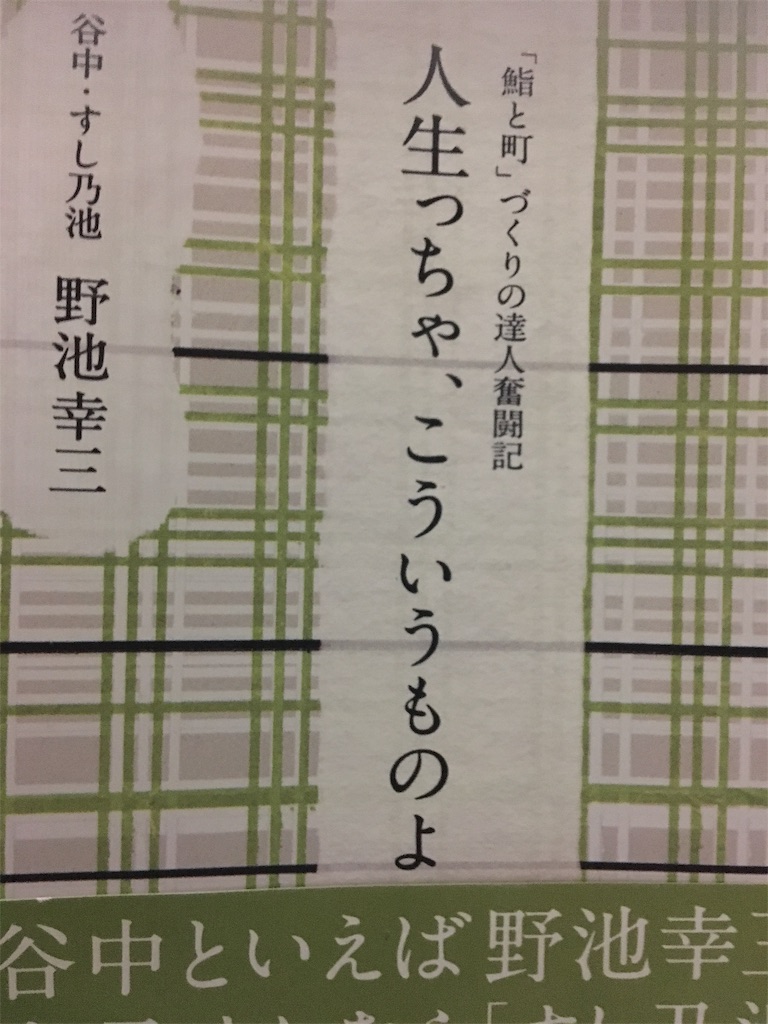 「鮨と町」づくりの達人奮闘記
人生っちゃ、こういうものよ
谷中・すし乃池 野池幸三
谷中といえば野池幸三